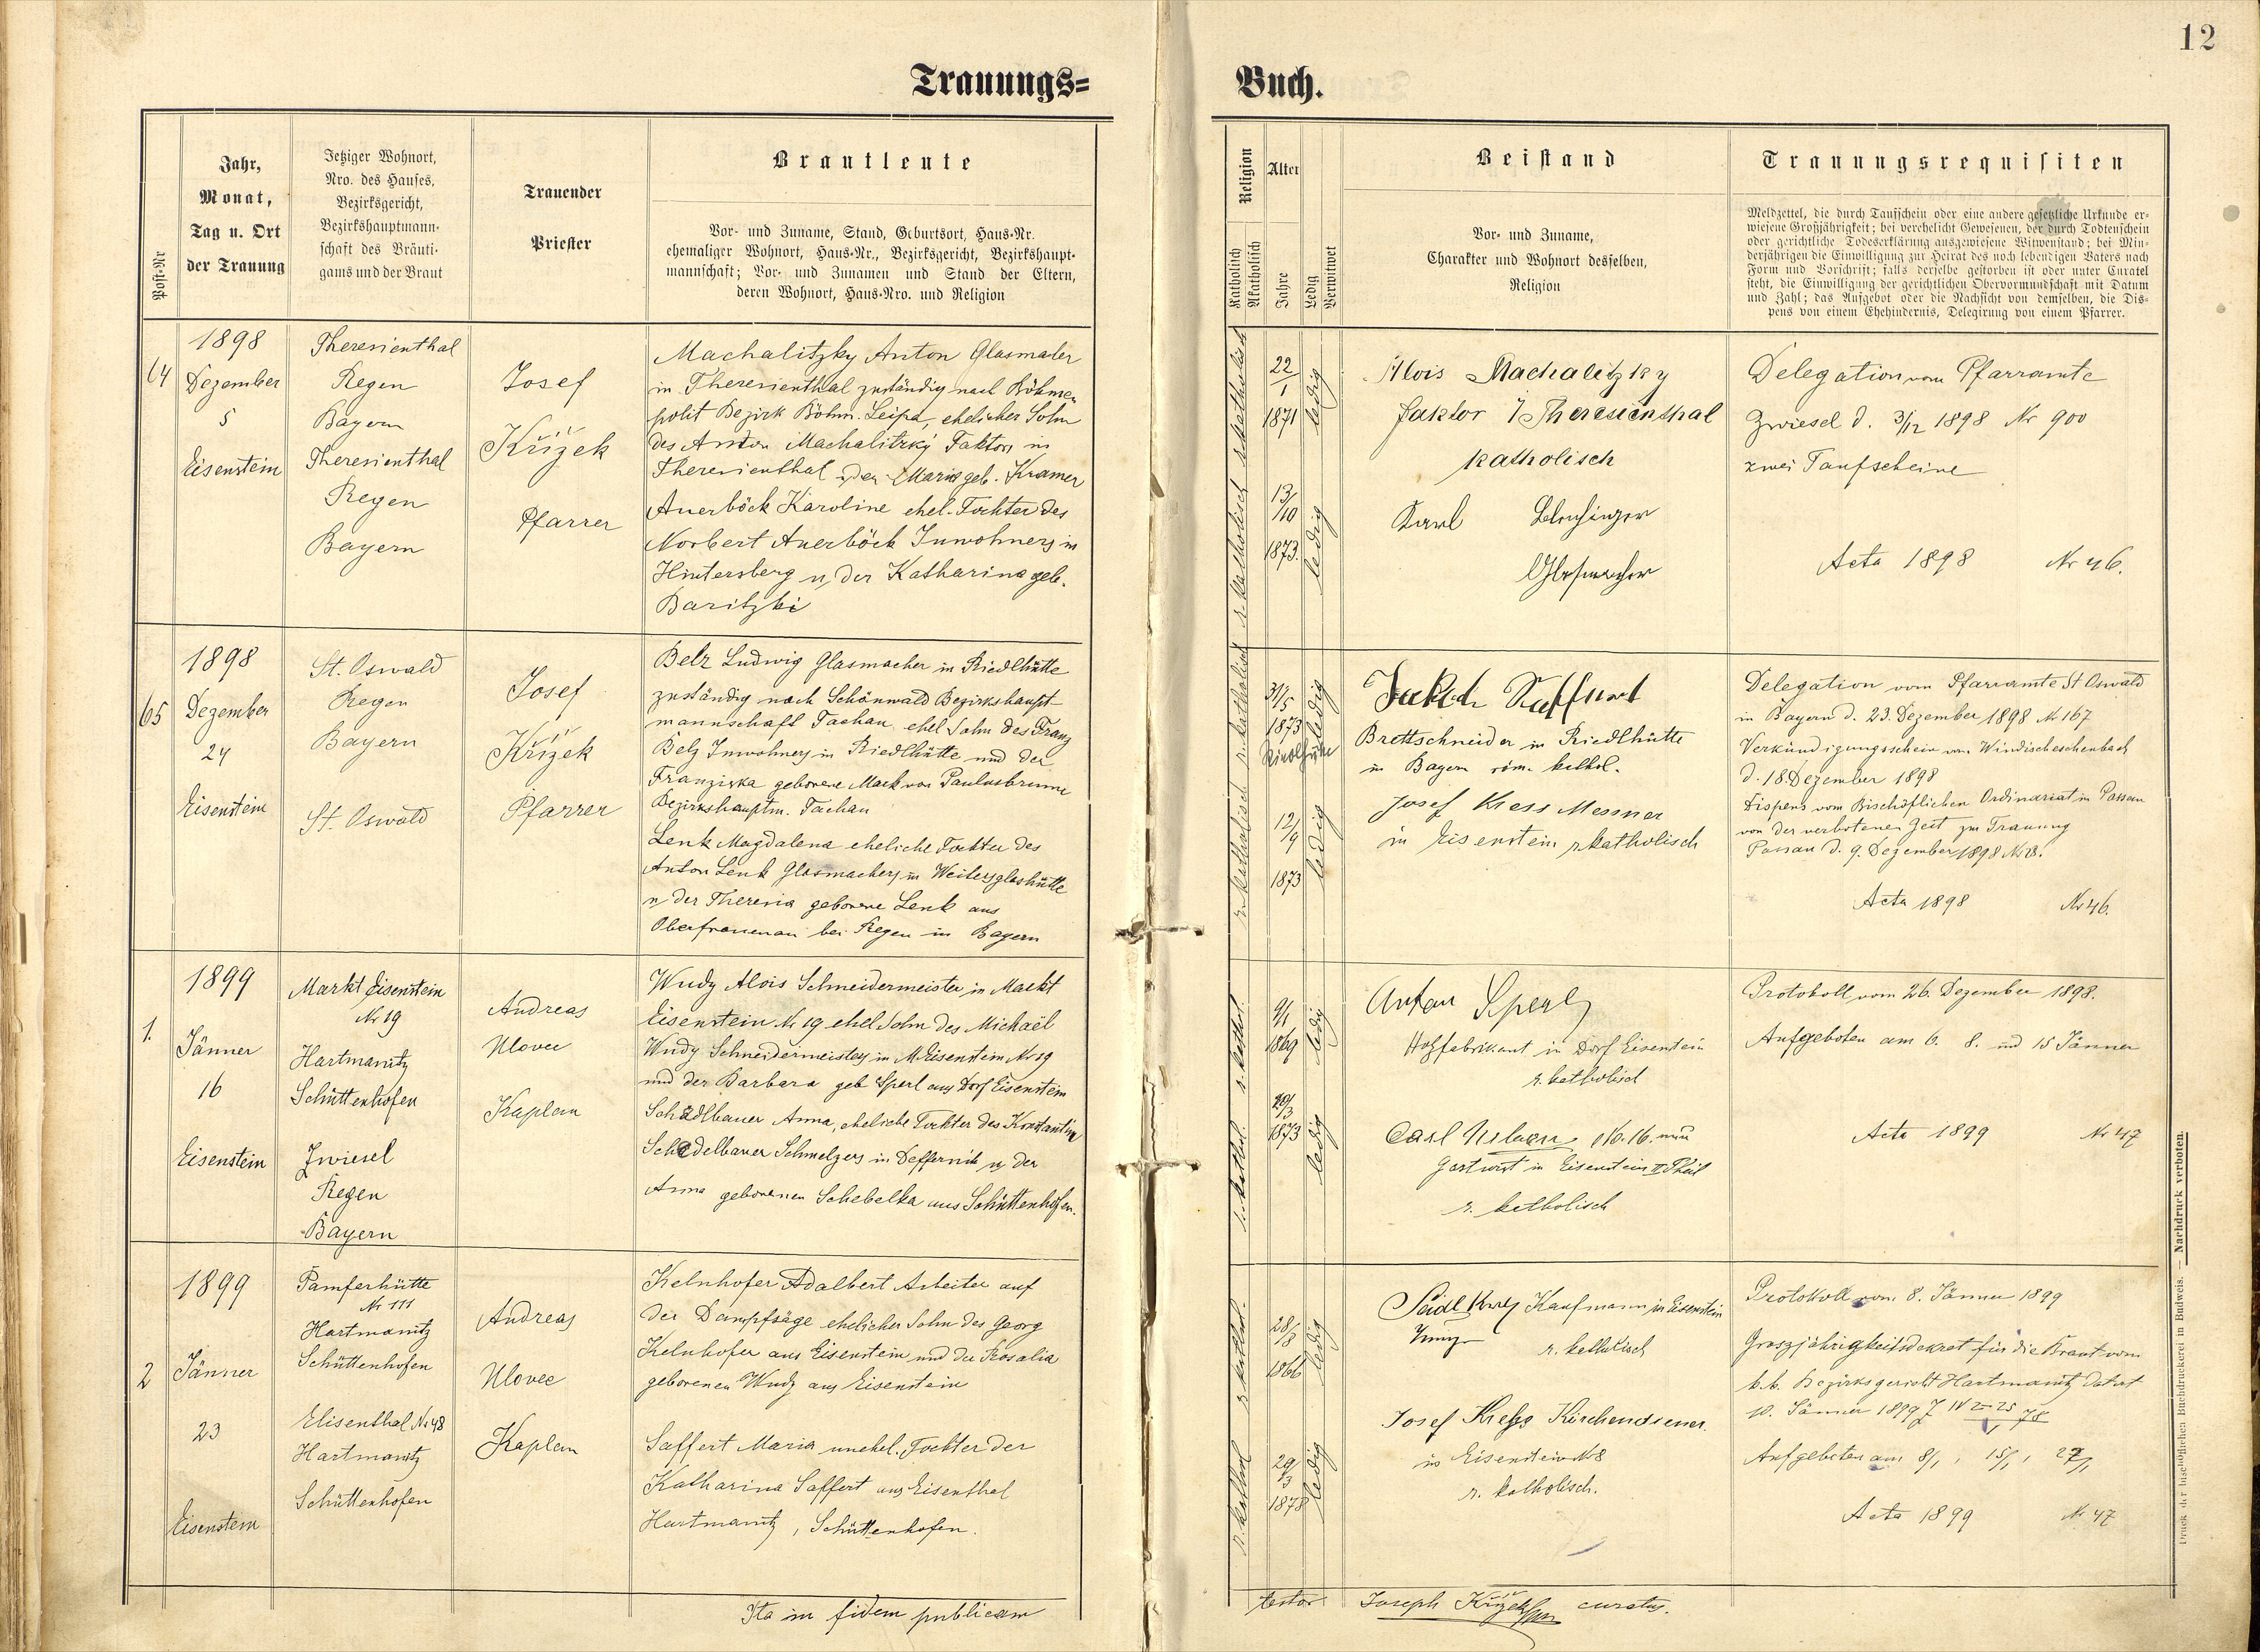 12
Trauungs=
Buch.
Post-Nr
Jahr,
Monat,
Tag u. Ort
der Trauung
Jetziger Wohnort,
Nro. des Hauses,
Bezirksgericht,
Bezirkshauptmann-
schaft des Bräuti-
gams und der Braut
Trauender
Priester
Brautleute
Vor- und Zuname, Stand, Geburtsort, Haus-Nr.
ehemaliger Wohnort, Haus-Nr., Bezirksgericht, Bezirkshaupt-
mannschaft; Vor- und Zunamen und Stand der Eltern,
deren Wohnort, Haus-Nro. und Religion
Religion
Katholisch
Akatholisch
Alter
Jahre
Ledig
Verwitwet
Beistand
Vor- und Zuname,
Charakter und Wohnort desselben,
Religion
Trauungsrequisiten
Meldzettel, die durch Taufschein oder eine andere gesetzliche Urkunde er-
wiesene Großjährigkeit; bei verehelicht Gewesenen, der durch Todtenschein
oder gerichtliche Todeserklärung ausgewiesene Witwenstand; bei Min-
derjährigen die Einwilligung zur Heirat des noch lebendigen Vaters nach
Form und Vorschrift; falls derselbe gestorben ist oder unter Curatel
steht, die Einwilligung der gerichtlichen Obervormundschaft mit Datum
und Zahl; das Aufgebot oder die Nachsicht von demselben, die Dis-
pens von einem Ehehindernis, Delegirung von einem Pfarrer.
64
1898
Dezember
5
Eisenstein
Theresienthal
Regen
Bayern
Theresienthal
Regen
Bayern
Josef
Křižek
Pfarrer
Machalitzky Anton Glasmaler
in Theresienthal zuständig nach Böhmen
polit Bezirk Böhm. Leipa, ehelicher Sohn
des Anton Machalitzký Faktors in
Theresienthal u. der Maria geb. Kramer
Auerböck Karoline ehel. Tochter des
Norbert Auerböck Inwohners in
Hintersberg u. der Katharina geb.
Baritzki
r. katholisch
r. katholisch
22/1
1871
ledig
13/10
1873.
ledig
Alois Machalitzky
Faktor i/Theresienthal
katholisch
Karl
Glasmacher
Delegation vom Pfarramte
Zwiesel d. 3/12 1898 Nr 900
zwei Taufscheine
Acta 1898 Nr 46.
65
1898
Dezember
24
Eisenstein
St. Oswald
Regen
Bayern
St. Oswald
Josef
Křižek
Pfarrer
Belz Ludwig Glasmacher in Riedlhütte
zuständig nach Schönwald Bezirkshaupt-
mannschaft Tachau, ehel Sohn des Franz
Belz Inwohners in Riedlhütte und der
Franziska geborene Mack von Paulusbrunn
Bezirkshauptm. Tachau
Lenk Magdalena eheliche Tochter des
Anton Lenk Glasmachers in Weitersglashütte
u der Theresia geborene Lenk aus
Oberfrauenau bei Regen in Bayern
r. katholisch
r. katholisch
31/5
1873
ledig
12/9
1873
ledig
Brettschneider in Riedlhütte
in Bayern röm. kathol.
Josef Kress Messner
in Eisenstein r katholisch
Delegation vom Pfarramte St Oswald
in Bayern d. 23. Dezember 1898 N 167
Verkündigungsschein von Windischeschenbach
d. 18. Dezember 1898
Dispens vom Bischöflichen Ordinariat in Passau
von der verbotenen Zeit zur Trauung
Passau d. 9. Dezember 1898
Acta 1898 Nr 46.
1.
1899
Jänner
16
Eisenstein
Markt Eisenstein
Nr 19
Hartmanitz
Schüttenhofen
Zwiesel
Regen
Bayern
Andreas
Ulovec
Kaplan
Wudy Alois Schneidermeister in Markt
Eisenstein Nr 19 ehel Sohn des Michael
Wudy Schneidermeisters in M. Eisenstein Nr 19
und der Barbara geb Sperl aus Dorf Eisenstein
Schadlbauer Anna, eheliche Tochter des Konstantin
Schedelbauer Schmelzers in Deffernik u. der
Anna geborenen Schebelka aus Schüttenhofen.
r. kathol.
r. kathol.
9/1
1869
ledig
1873
ledig
Anton Sperl
Holzfabrikant in Dorf Eisenstein
r. katholisch
Carl No. 16.
Gastwirt in Eisenstein II Theil
r. katholisch
Protokoll vom 26. Dezember 1898.
Aufgeboten am 6. 8. und 15 Jänner
Acta 1899 Nr 47
2
1899
Jänner
23
Eisenstein
Pamferhütte
Nr 111
Hartmanitz
Schüttenhofen
Elisenthal Nr 48
Hartmanitz
Schüttenhofen
Andreas
Ulovec
Kaplan
Kelnhofer Adalbert Arbeiter auf
der Dampfsäge ehelicher Sohn des Georg
Kelnhofer aus Eisenstein und der Rosalia
geborenen Wudy aus Eisenstein
Saffert Maria unehel. Tochter der
Katharina Saffert aus Eisenthal
Hartmanitz, Schüttenhofen.
r. kathol.
r. kathol
28/8
1866
ledig
29/3
1878
ledig
Seidl Kaufmann in Eisenstein
r. katholisch
Josef Kress Kirchendiener
in Eisenstein N 8
r. katholisch.
Protokoll vom 8. Jänner 1899
Groszjährigkeitsdekret für die Braut vom
k.k. Bezirksgericht Hartmanitz datirt
10. Jänner 1899
Aufgeboten am 8/1, 15/1, 22/1
Acta 1899 Nr 47
Ita in fidem publicam
testor
Joseph Křižek curatus.
Druck der bischöflichen Buchdruckerei in Budweis. — Nachdruck verboten.